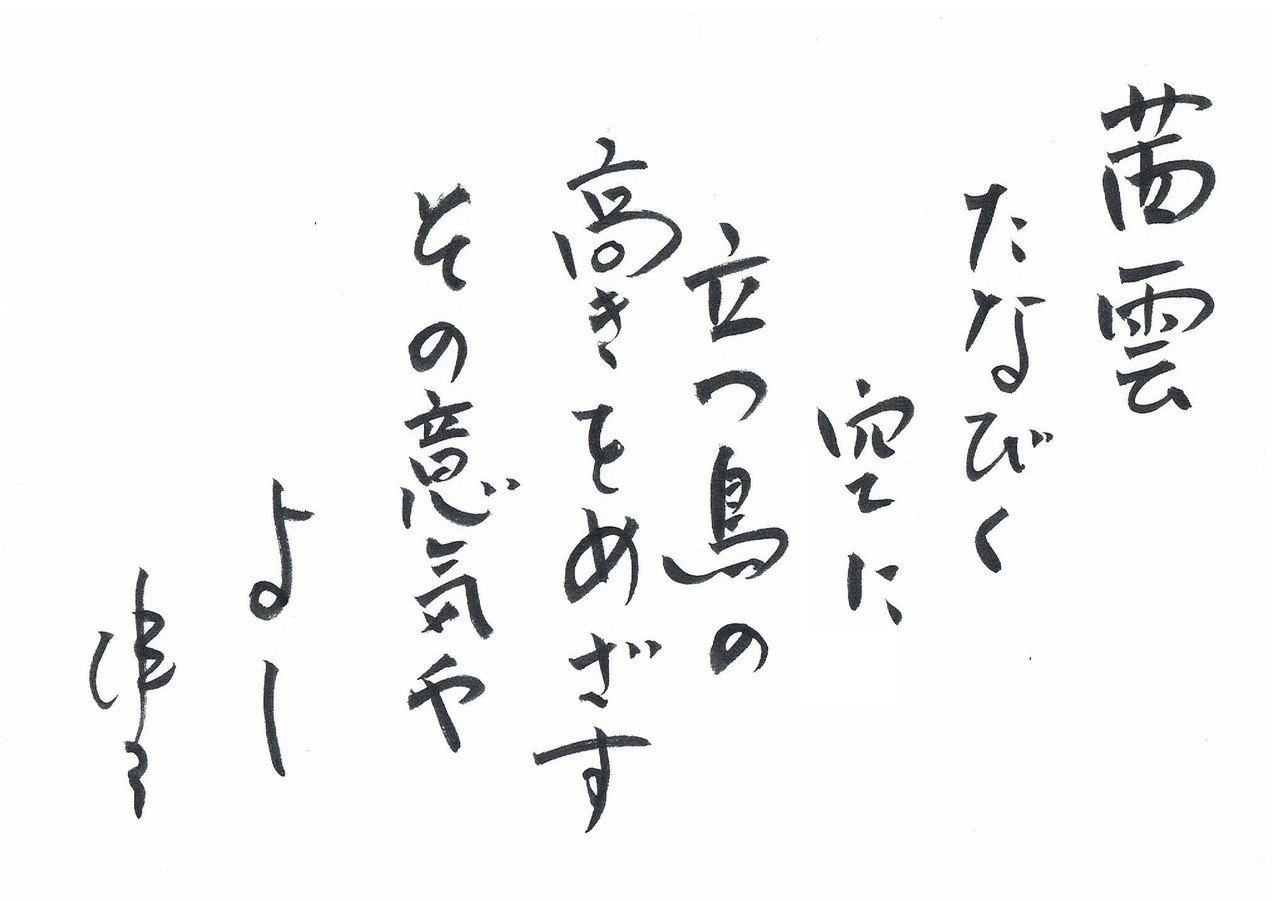 茜雲
たなびく
空に
立つ鳥の
高きをめざす
その意気や
よし